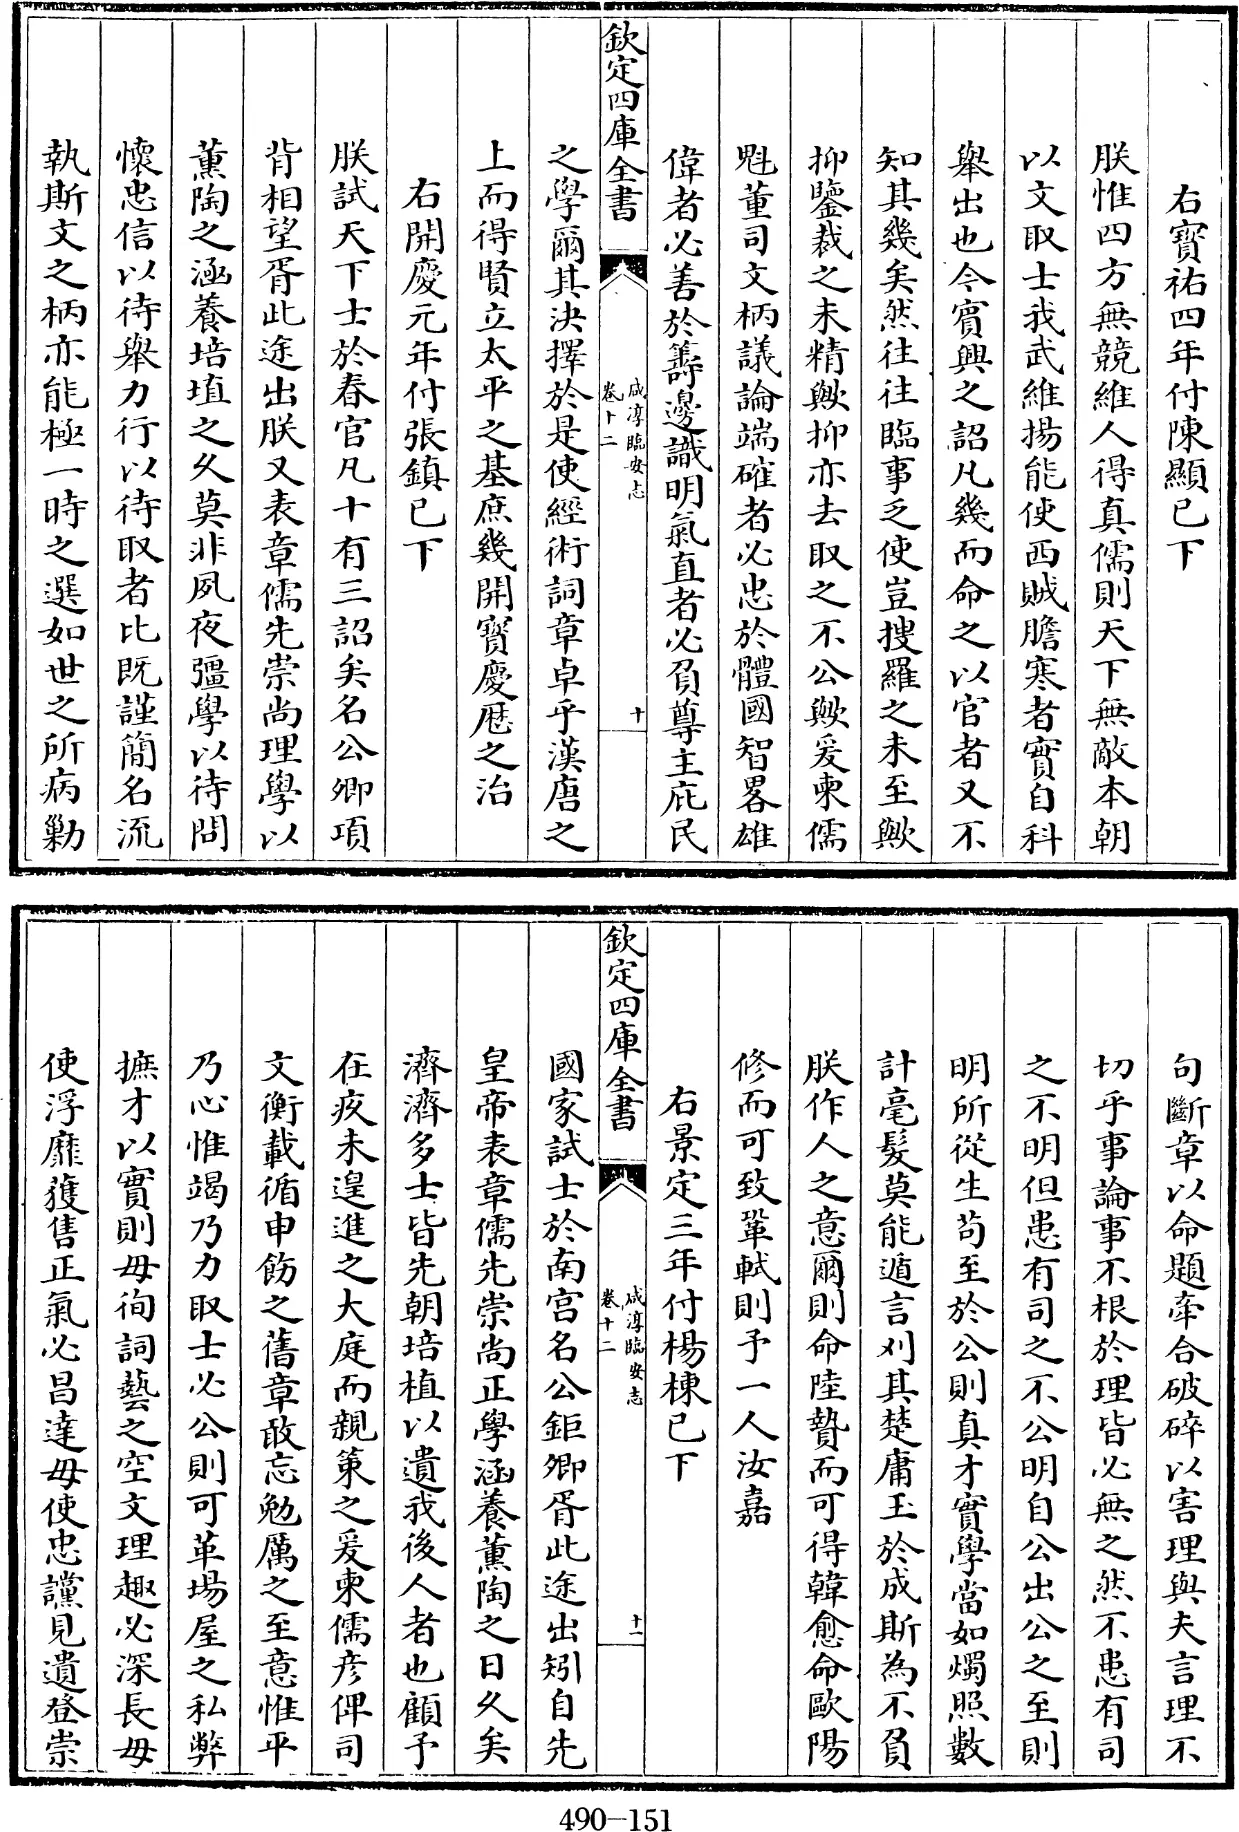 右寳祐四年付陳顯已下
朕惟四方無競維人得真儒則天下無敵本朝
以文取士我武維揚能使西賊膽寒者實自科
舉出也今賓興之詔凡幾而命之以官者又不
知其幾矣然往往臨事乏使豈搜羅之未至歟
抑鑒裁之未精歟抑亦去取之不公歟爰柬儒
魁董司文柄議論端確者必忠於體國智畧雄
偉者必善於籌邊識明氣直者必負尊主庇民
欽定四庫全書
咸淳臨安志
卷十二
十
之學爾其決擇於是使經術詞章卓乎漢唐之
上而得賢立太平之基庶幾開寳慶厯之治
右開慶元年付張鎮已下
朕試天下士於春官凡十有三詔矣名公卿項
背相望胥此途出朕又表章儒先崇尚理學以
薫陶之涵養培埴之久莫非夙夜彊學以待問
懷忠信以待舉力行以待取者比既謹簡名流
執斯文之柄亦能極一時之選如世之所病勦
句斷章以命題牽合破碎以害理與夫言理不
切乎事論事不根於理皆必無之然不患有司
之不明但患有司之不公明自公出公之至則
明所從生苟至於公則真才實學當如燭照數
計毫髮莫能遁言刈其楚庸玉於成斯為不負
朕作人之意爾則命陸贄而可得韓愈命歐陽
修而可致鞏軾則予一人汝嘉
右景定三年付楊棟已下
欽定四庫全書
咸淳臨安志
卷十二
十一
國家試士於南宫名公鉅卿胥此途出矧自先
皇帝表章儒先崇尚正學涵養薫陶之日久矣
濟濟多士皆先朝培植以遺我後人者也顧予
在疚未遑進之大庭而親策之爰柬儒彦俾司
文衡載循申飭之舊章敢忘勉厲之至意惟平
乃心惟竭乃力取士必公則可革場屋之私弊
摭才以實則毋徇詞藝之空文理趣必深長毋
使浮靡獲售正氣必昌達毋使忠讜見遺登崇
490-151